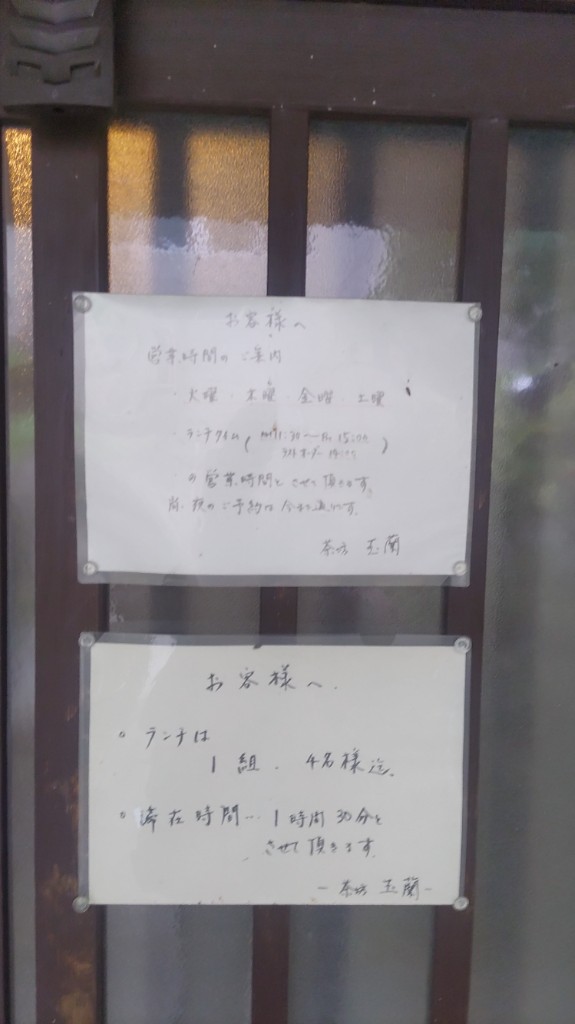 お客様へ
営業時間のご案内
・火曜・木曜・金曜・土曜
・ランチタイム(AM11:30〜PM15:00
ラストオーダー14:00)
の営業時間とさせて頂きます。
尚、夜のご予約は今まで通りです。
茶坊 玉蘭
お客様へ.
○ ランチは
1組. 4名様迄.
○ 滞在時間… 1時間30分と
させて頂きます.
-茶坊 玉蘭-